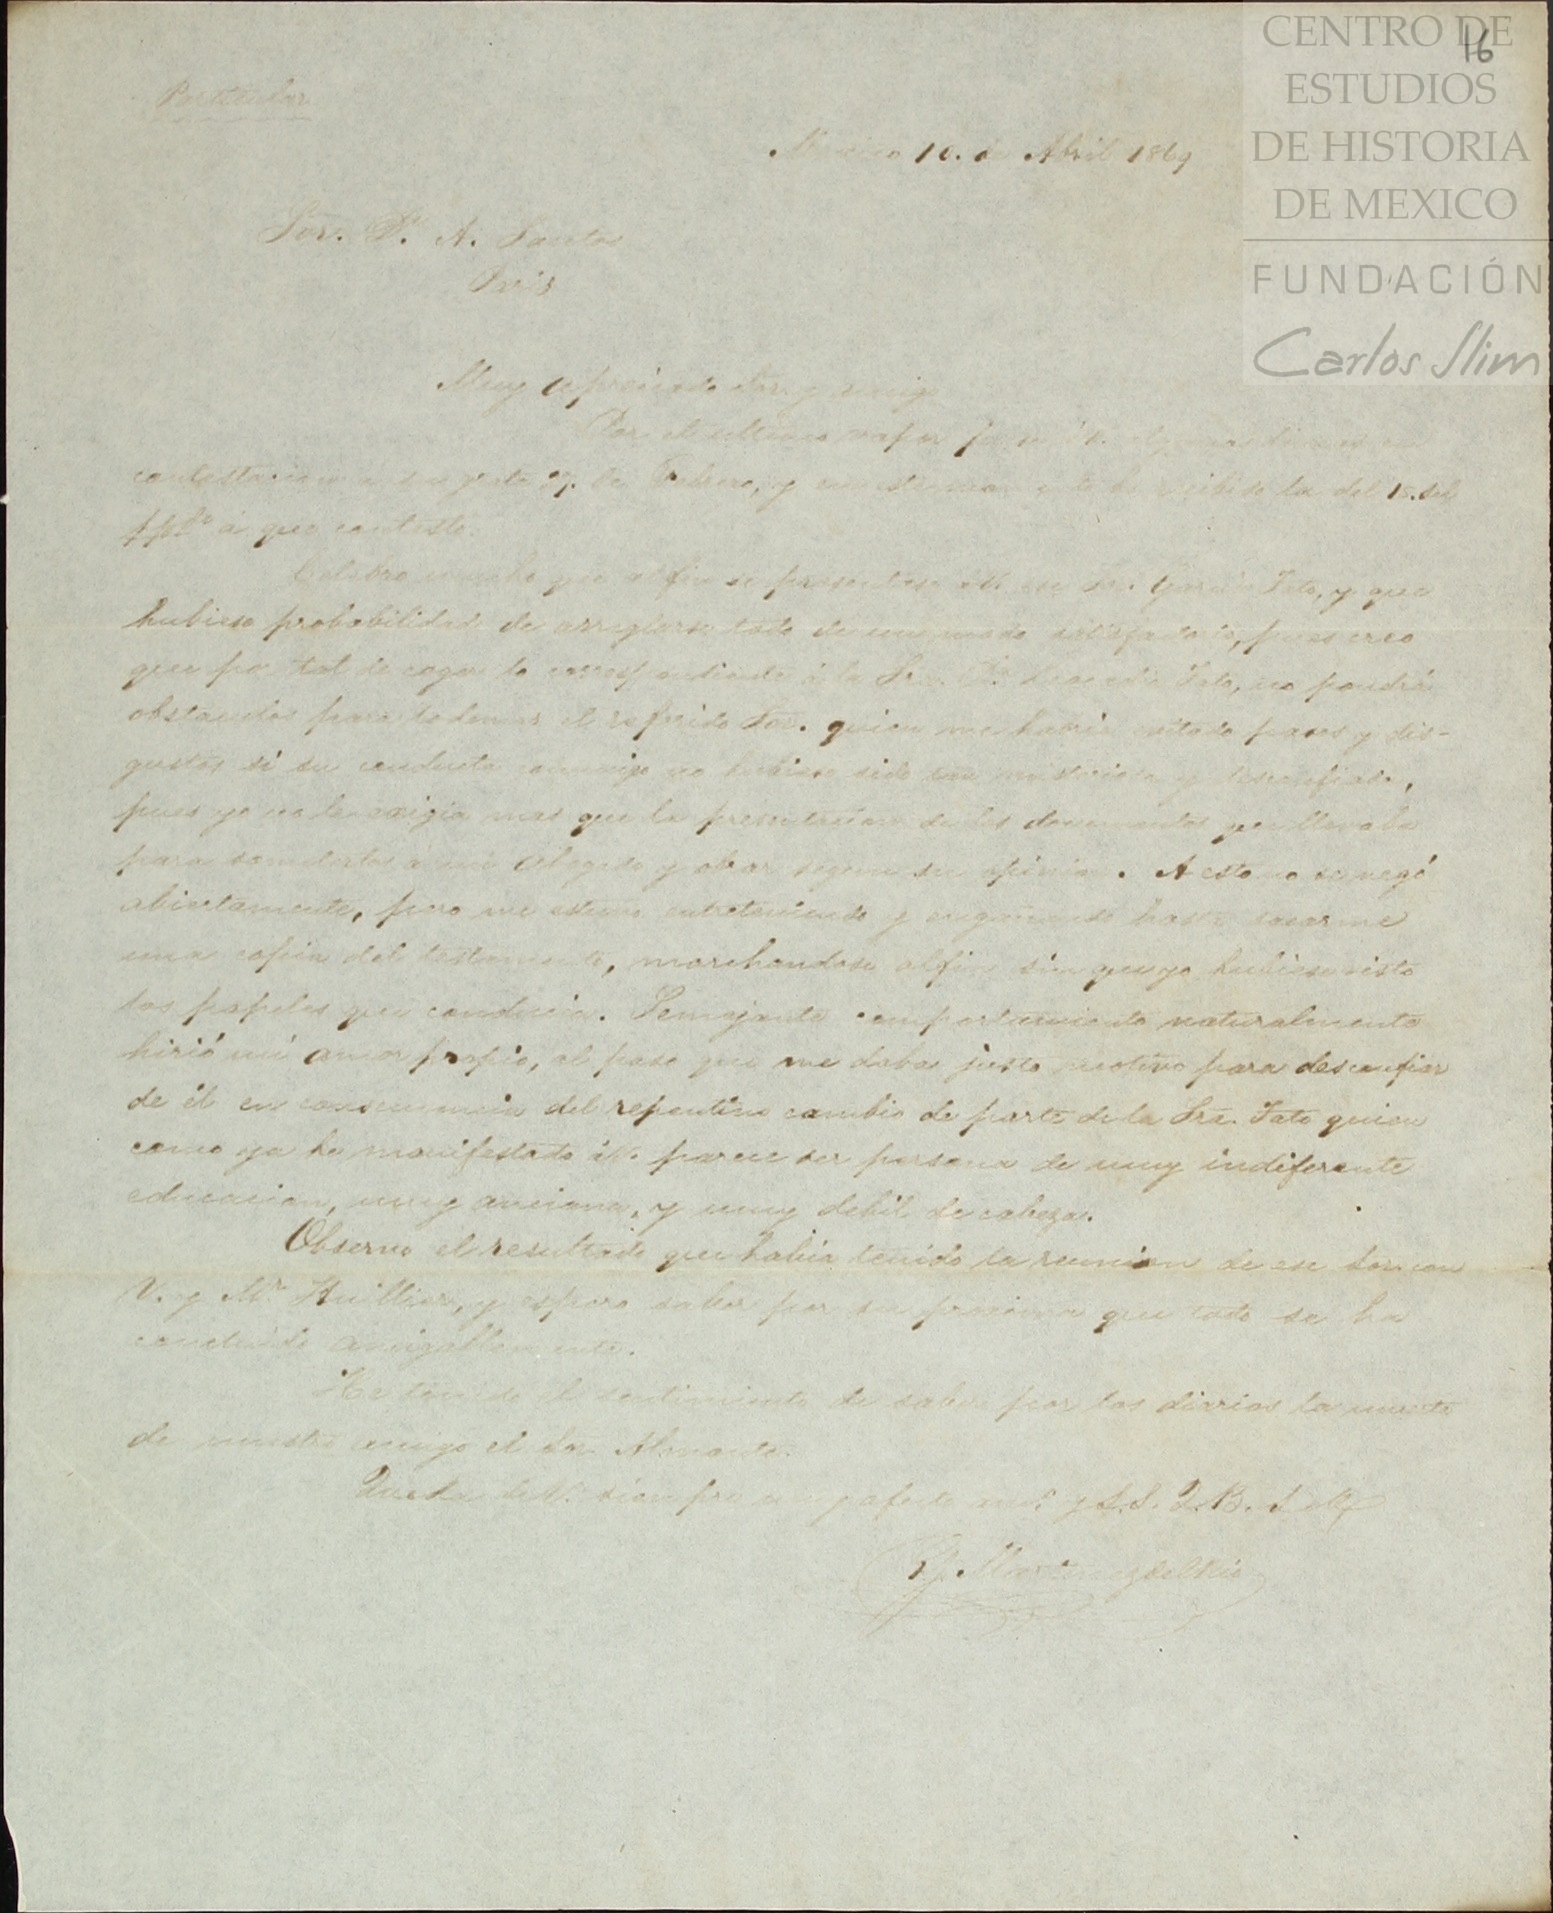 CENTRO DE
ESTUDIOS
DE HISTORIA
DE MEXICO
FUNDACIÓN
Carlos Slim
16
Particular
Mexico 10. de Abril 1869
Sor. Dn. A.
Paris
Muy apreciado Sor. y amigo
Por el ultimo vapor algunas lineas en
contestacion a su grata 27. de Febrero, y he recibido la del 15. del
ppdo. á que contesto.
Celebro mucho que al fin se presentase á V. ese Sr. Garcia Tato, y que
hubiese probabilidad de arreglarse todo de un modo satisfactorio, pues creo
que por tal de coger lo correspondiente á la Sra. Da. Tato, no pondrá
obstaculos para lo demas el referido Sor. quien me havria evitado pasos y dis-
gustos si su conducta conmigo no hubiese sido tan misteriosa y desconfiada,
pues yo no le exigia mas que la presentacion de los documentos que llevaba
para someterlos á mi abogado y obrar segun su opinion. A esto no se negó
abiertamente, pero me estuvo entreteniendo y engañando hasta sacarme
una copia del testamento, marchandose al fin sin que yo hubiese visto
los papeles que conducia. Semejante comportamiento naturalmente
hirió mi amor propio, al paso que me daba justo motivo para desconfiar
de él en consecuencia del repentino cambio de parte de la Sra. Tato quien
como ya he manifestado á V. parece ser persona de muy indiferente
educacion, muy anciana, y muy debil de cabeza.
Observo el resultado que habia tenido la reunion de ese Sor. con
V. y Mr. Huillier, y espero saber por su proxima que todo se ha
concluido amigablemente.
He tenido el sentimiento de saber por los diarios la muerte
de nuestro amigo el Sor. Almonte.
Queda de V. siempre muy afecto amo. y S.S. Q.B.S.M.
P. Martinez del Rio